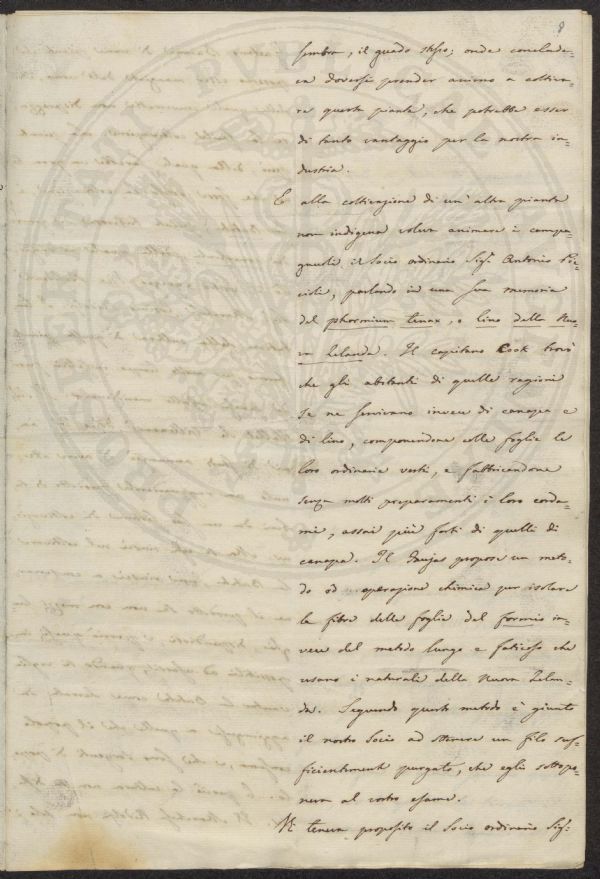 8
sembra, il guado stesso; onde conclude-
va doversi prender animo a coltiva-
re questa pianta, che potrebbe esser
di tanto vantaggio per la nostra in-
dustria.
E alla coltivazione di un' altra pianta
non indigena voleva animare i campa-
gnuoli il Socio ordinario Sig. Antonio Pic-
cioli, parlando in una sua memoria
del phormium tenax, o lino della Nuo-
va Zelanda. Il capitano Cook trovò
che gli abitanti di quelle regioni
se ne servivano invece di canapa e
di lino, componendone colle foglie le
loro ordinarie vesti, e fabbricandone
senza molti preparamenti i loro corda-
mi, assai più forti di quelli di
canapa. Il Faujas propose un meto-
do od operazione chimica per isolare
la fibra delle foglie del formio in-
vece del metodo lungo e faticoso che
usano i naturali della Nuova Zelan-
da. Seguendo questo metodo è giunto
il nostro Socio ad ottenere un filo suf-
ficientemente purgato, che egli sottopo-
neva al vostro esame.
Vi teneva proposito il Socio ordinario Sig: